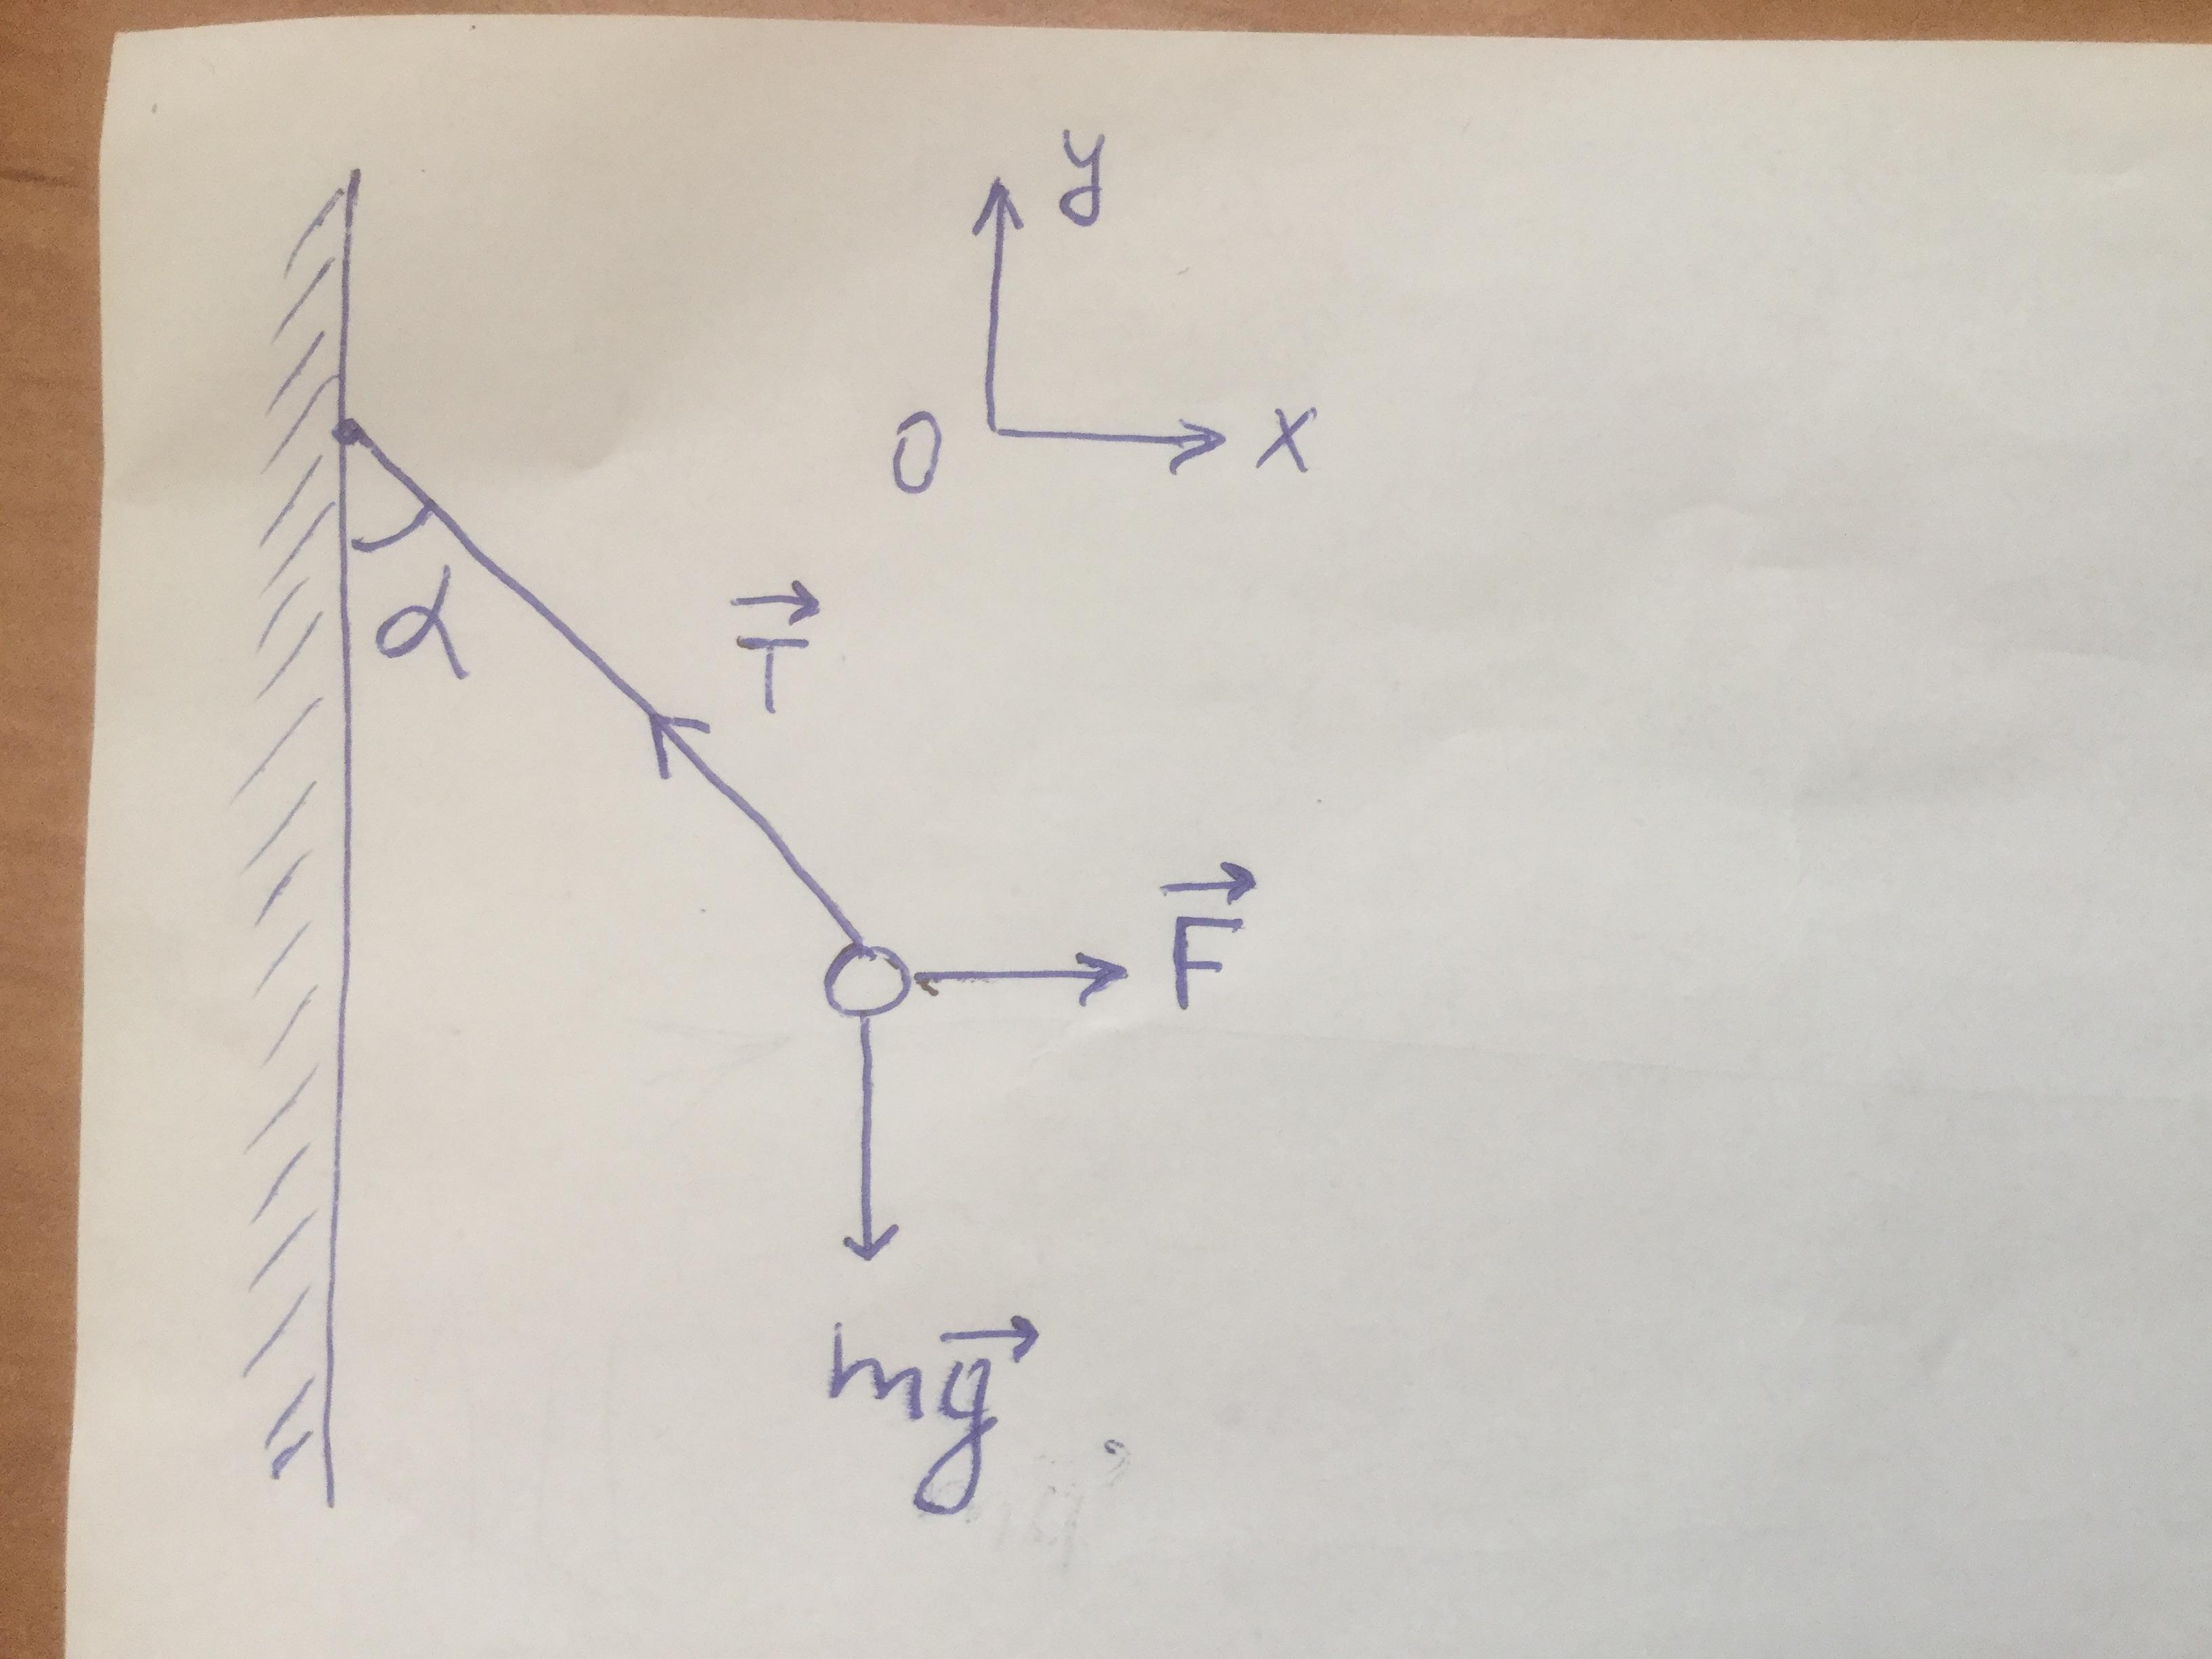 y
O
x
α
T⃗
F⃗
mg⃗